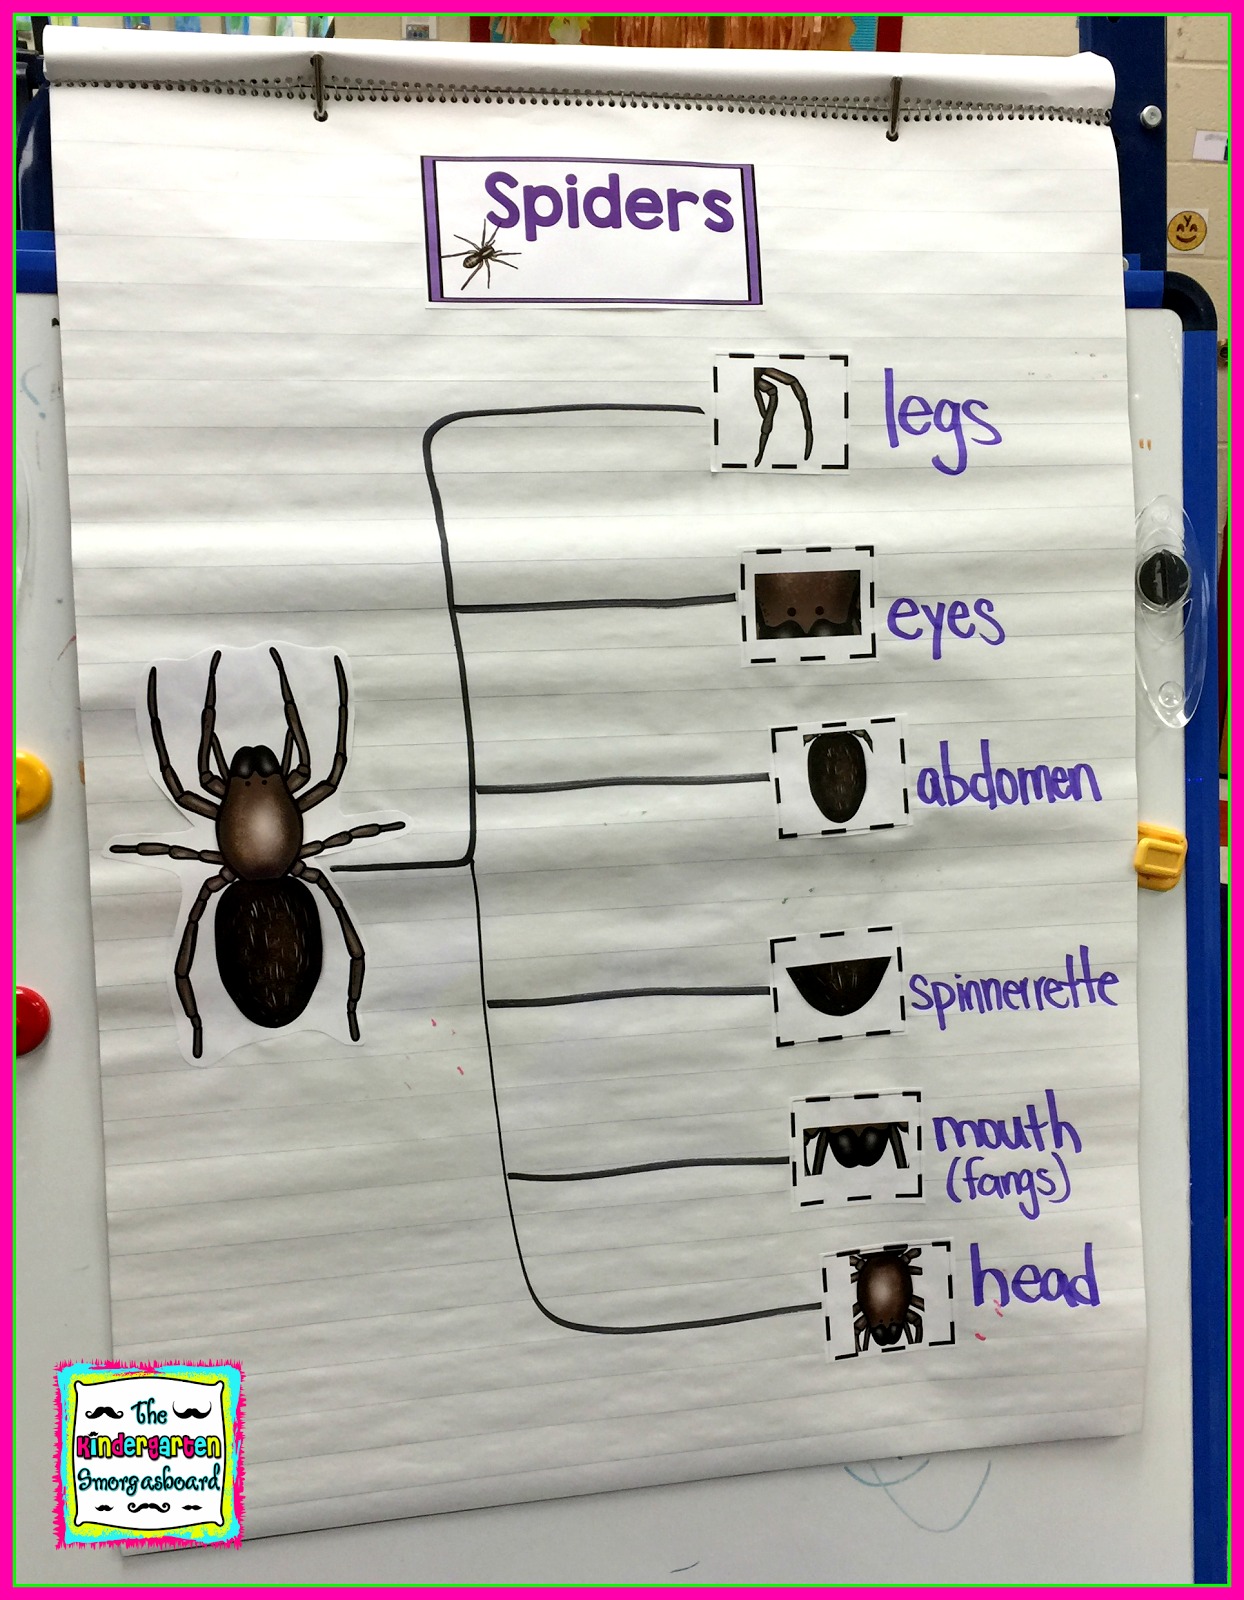 Spiders
legs
eyes
abdomen
spinnerrette
mouth
(fangs)
head
The
Kindergarten
Smorgasboard